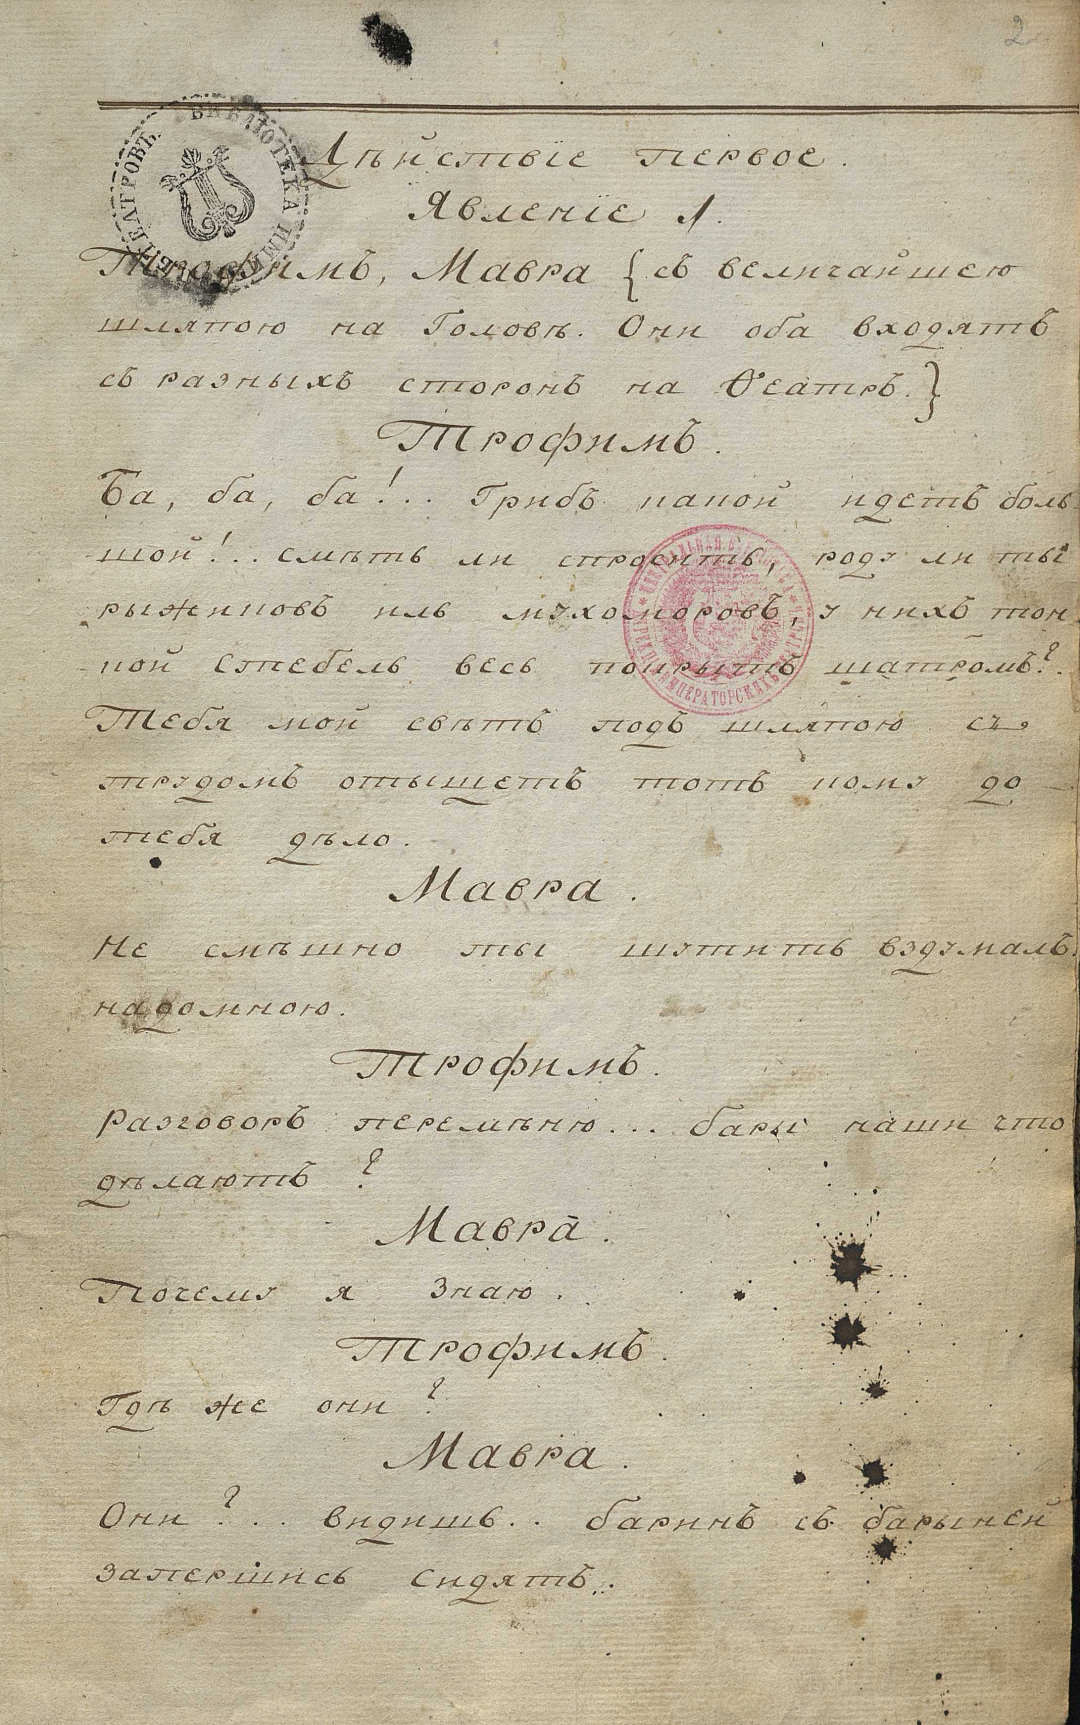 2
БИБЛІОТЕКА ИМП. ТЕАТРОВЪ
Дѣйствіе первое.
Явленіе 1.
Трофимъ, Мавра {съ величайшею
шляпою на Головѣ. Они оба входятъ
съ разныхъ сторонъ на Ѳеатръ.}
Трофимъ.
Ба, ба, ба!.. Грибъ какой идетъ боль-
шой!.. смѣть ли спросить, роду ли ты
рыжиковъ иль мухоморовъ, у нихъ тон-
кой стебель весь покрытъ шатромъ?.
Тебя мой свѣтъ подъ шляпою съ
трудомъ отыщетъ тотъ кому до
тебя дѣло.
Мавра.
Не смѣшно ты шутить вздумалъ
надомною.
Трофимъ.
Разговоръ перемѣню... бары наши что
дѣлаютъ?
Мавра.
Почему я знаю.
Трофимъ.
Гдѣ же они?
Мавра.
Они?.. видишь.. баринъ съ барыней
запершись сидятъ.